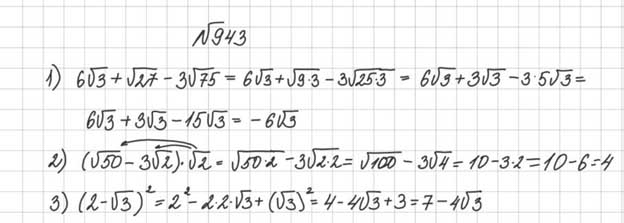 √943
1) 6√3 + √27 − 3√75 = 6√3 + √9·3 − 3√25·3 = 6√3 + 3√3 − 3·5√3 =
6√3 + 3√3 − 15√3 = −6√3
2) (√50 − 3√2)·√2 = √50·2 − 3√2·2 = √100 − 3√4 = 10 − 3·2 = 10 − 6 = 4
3) (2−√3)² = 2² − 2·2·√3 + (√3)² = 4 − 4√3 + 3 = 7 − 4√3